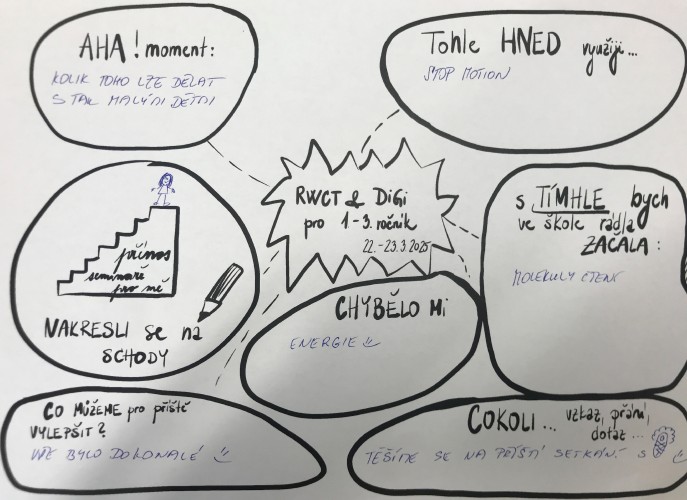 AHA! moment:
KOLIK TOHO LZE DĚLAT
S TAK MALÝMI DĚTMI
Tohle HNED využiji...
STOP MOTION
RWCT & DiGi
pro 1-3. ročník
22.-23.3.2025
s TÍMHLE bych
ve škole rád/a
ZAČALA:
MOLEKULY ČTENÍ
přínos
semináře
pro mě
NAKRESLI se na
SCHODY
CHYBĚLO Mi
ENERGIE
CO MŮŽEME pro příště
VYLEPŠIT?
VŠE BYLO DOKONALÉ
COKOLI... vzkaz, přání,
dotaz...
TĚŠÍME SE NA PŘÍŠTÍ SETKÁNÍ S